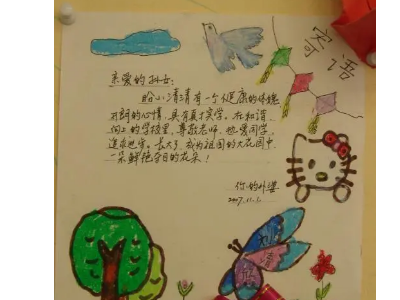 寄语
亲爱的孙女:
盼小清清有一个健康的体魄
开朗的心情,具有真才实学,在和谐
向上的学校里,尊敬老师,热爱同学,
追求进步,长大了,成为祖国的大花园中
一朵鲜艳夺目的花朵!
你的外婆
2007.11.1.
清